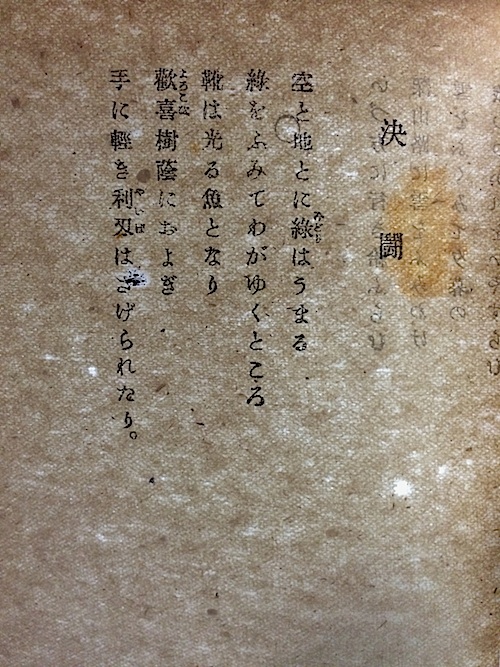 決鬪
空と地とに綠はうまる
綠をふみてわがゆくところ
靴は光る魚となり
歡喜樹蔭におよぎ
手に輕き利刄はさげられたり。